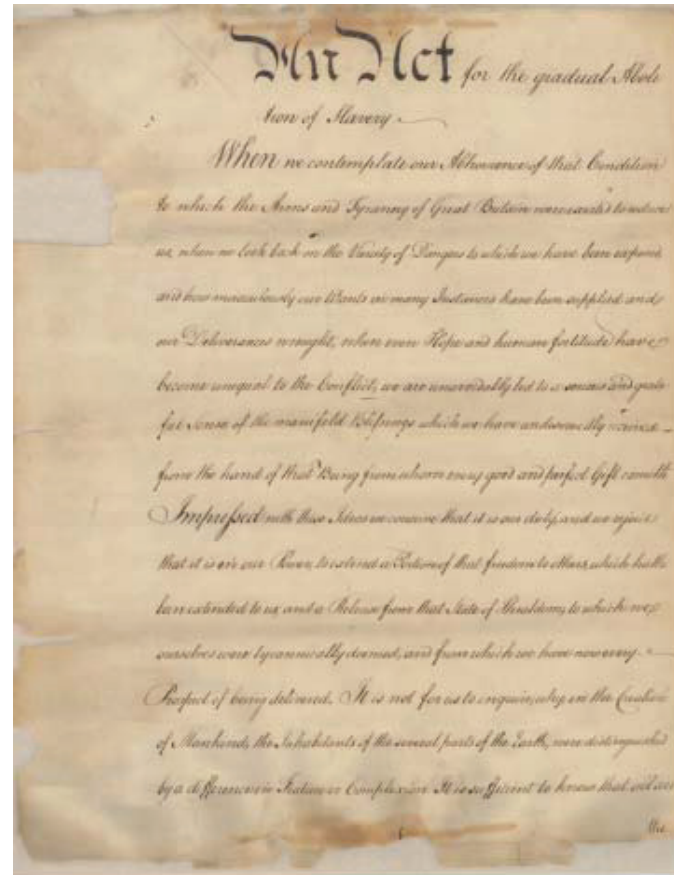 An Act for the gradual Aboli
tion of Slavery
When we contemplate our Abhorrence of that Condition
to which the Arms and Tyranny of Great Britain were exerted to reduce
us, when we look back on the Variety of Dangers to which we have been exposed
and how miraculously our Wants in many Instances have been supplied and
our Deliverances wrought, when even Hope and human fortitude have
become unequal to the Conflict, we are unavoidably led to a serious and grate
ful Sense of the manifold Blessings which we have undeservedly received
from the hand of that Being from whom every good and perfect Gift cometh
Impressed with these Ideas we conceive that it is our duty, and we rejoice
that it is in our Power, to extend a Portion of that freedom to others, which hath
been extended to us, and a Release from that State of Thraldom, to which we
ourselves were tyrannically doomed, and from which we have now every
Prospect of being delivered. It is not for us to enquire, why, in the Creation
of Mankind, the Inhabitants of the several parts of the Earth, were distinguished
by a difference in Feature or Complexion. It is sufficient to know that all are
the